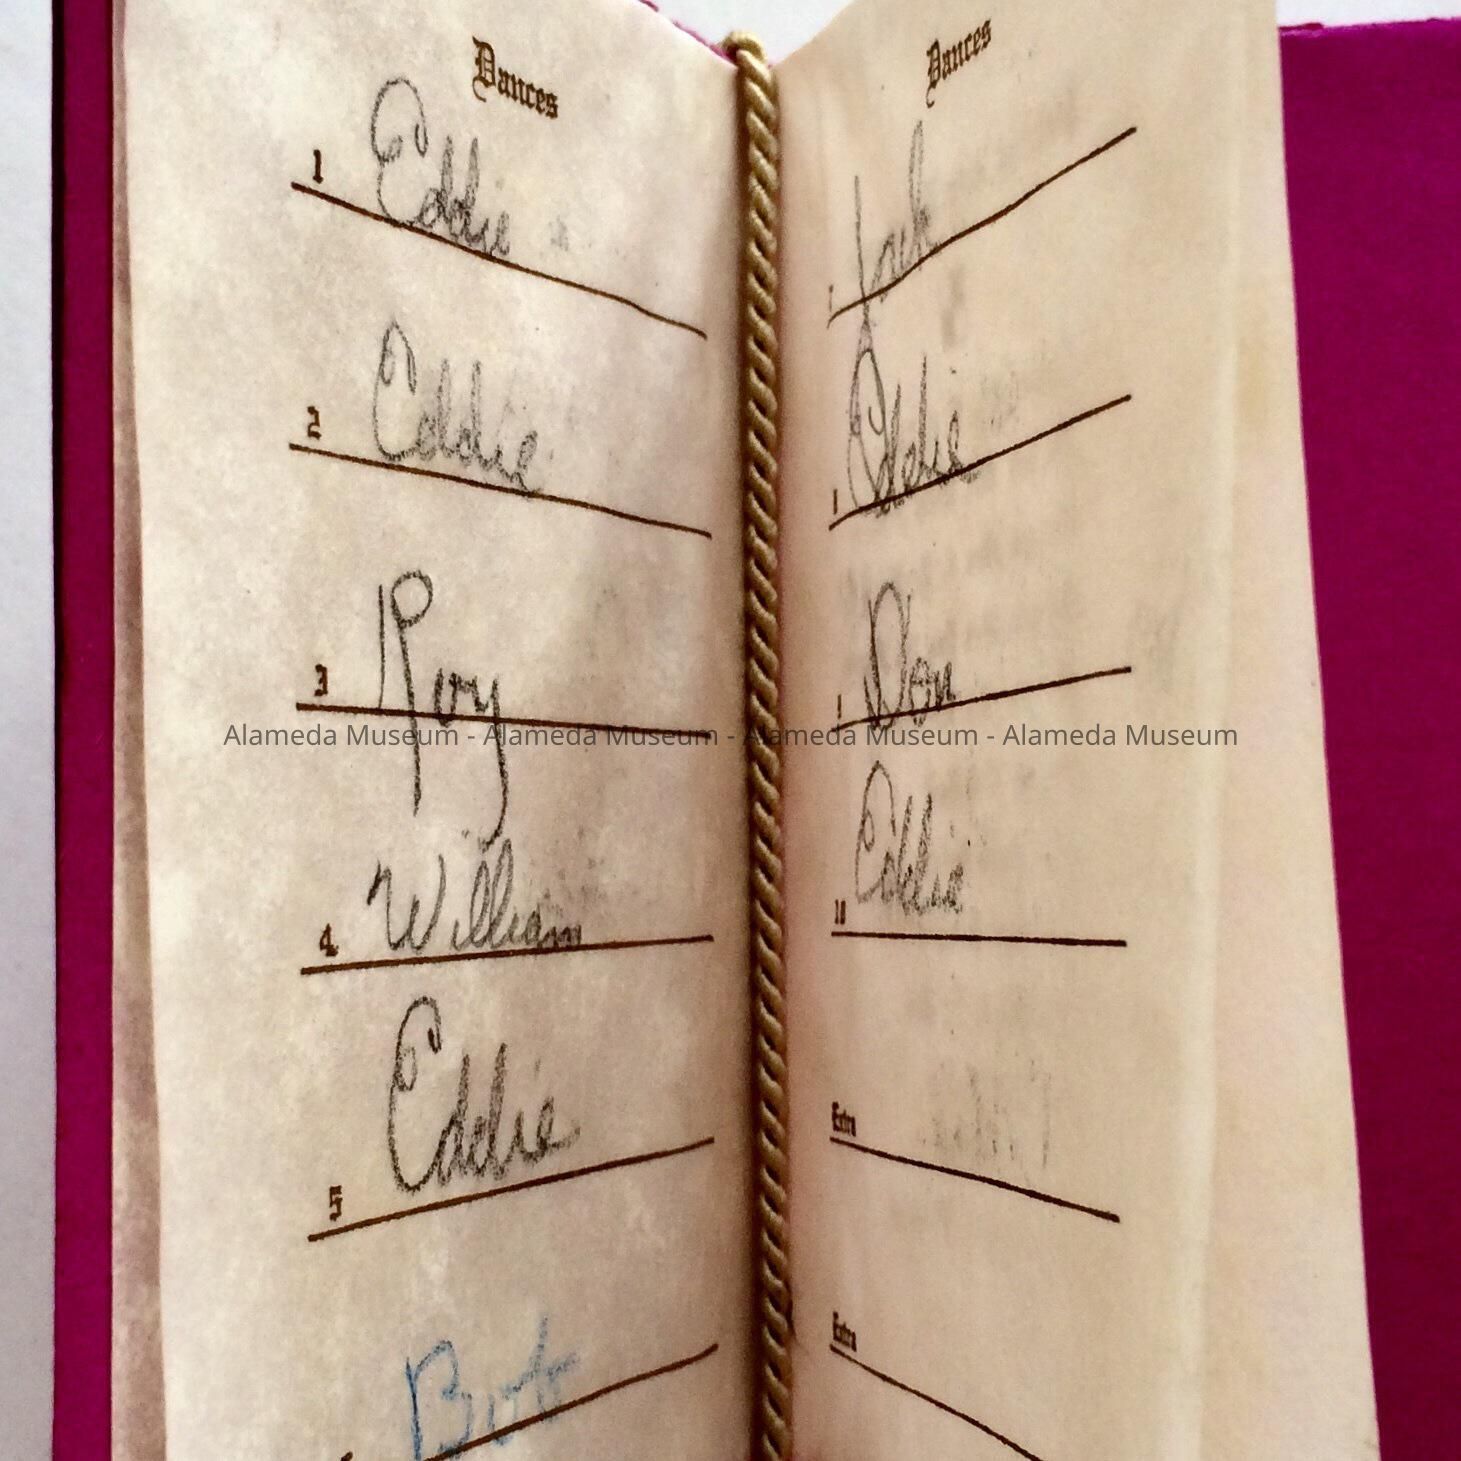 Dances
1 Eddie
2 Eddie
3 Roy
4 William
5 Eddie
Bob
Dances
Jack
Eddie
Don
10 Eddie
Extra
Extra
Alameda Museum - Alameda Museum - Alameda Museum - Alameda Museum